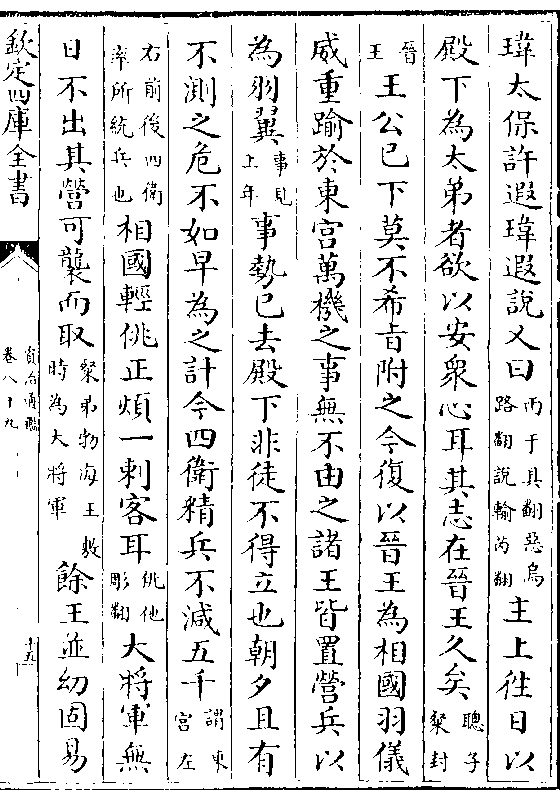 瑋太保許遐瑋遐說乂曰雨于具翻惡烏路翻說輸芮翻主上往日以
殿下為太弟者欲以安衆心耳其志在晉王久矣聰子粲封
晉王王公已下莫不希旨附之今復以晉王為相國羽儀
威重踰於東宮萬機之事無不由之諸王皆置營兵以
為羽翼事見上年事勢已去殿下非徒不得立也朝夕且有
不測之危不如早為之計今四衛精兵不減五千謂東宮左
右前後四衛率所統兵也相國輕佻正煩一刺客耳佻他彫翻大將軍無
日不出其營可襲而取粲弟勃海王敷時為大將軍餘王並幼固易
欽定四庫全書
資治通鑑
卷八十九
十五